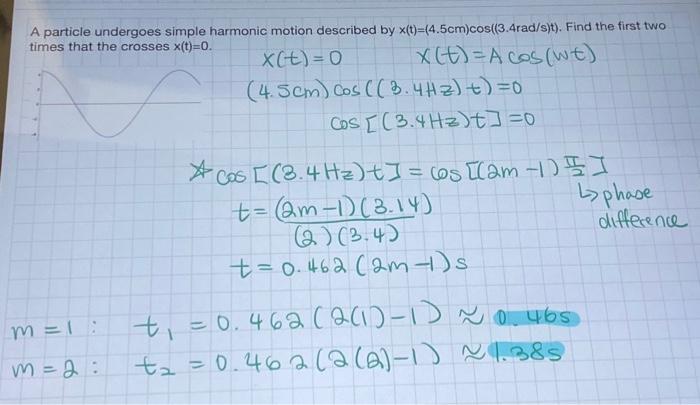 A particle undergoes simple harmonic motion described by x(t)=(4.5cm)cos((3.4rad/s)t). Find the first two
times that the crosses x(t)=0.
x(t)=0 x(t)=A cos(wt)
(4.5cm) cos((3.4Hz)t)=0
cos[(3.4Hz)t]=0
☆ cos[(3.4Hz)t]=cos[(2m-1)π/2]
↳ phase
difference
t=(2m-1)(3.14)
(2)(3.4)
t=0.462(2m-1)s
m=1: t₁=0.462(2(1)-1) ≈ 0.46s
m=2: t₂=0.462(2(2)-1) ≈ 1.38s